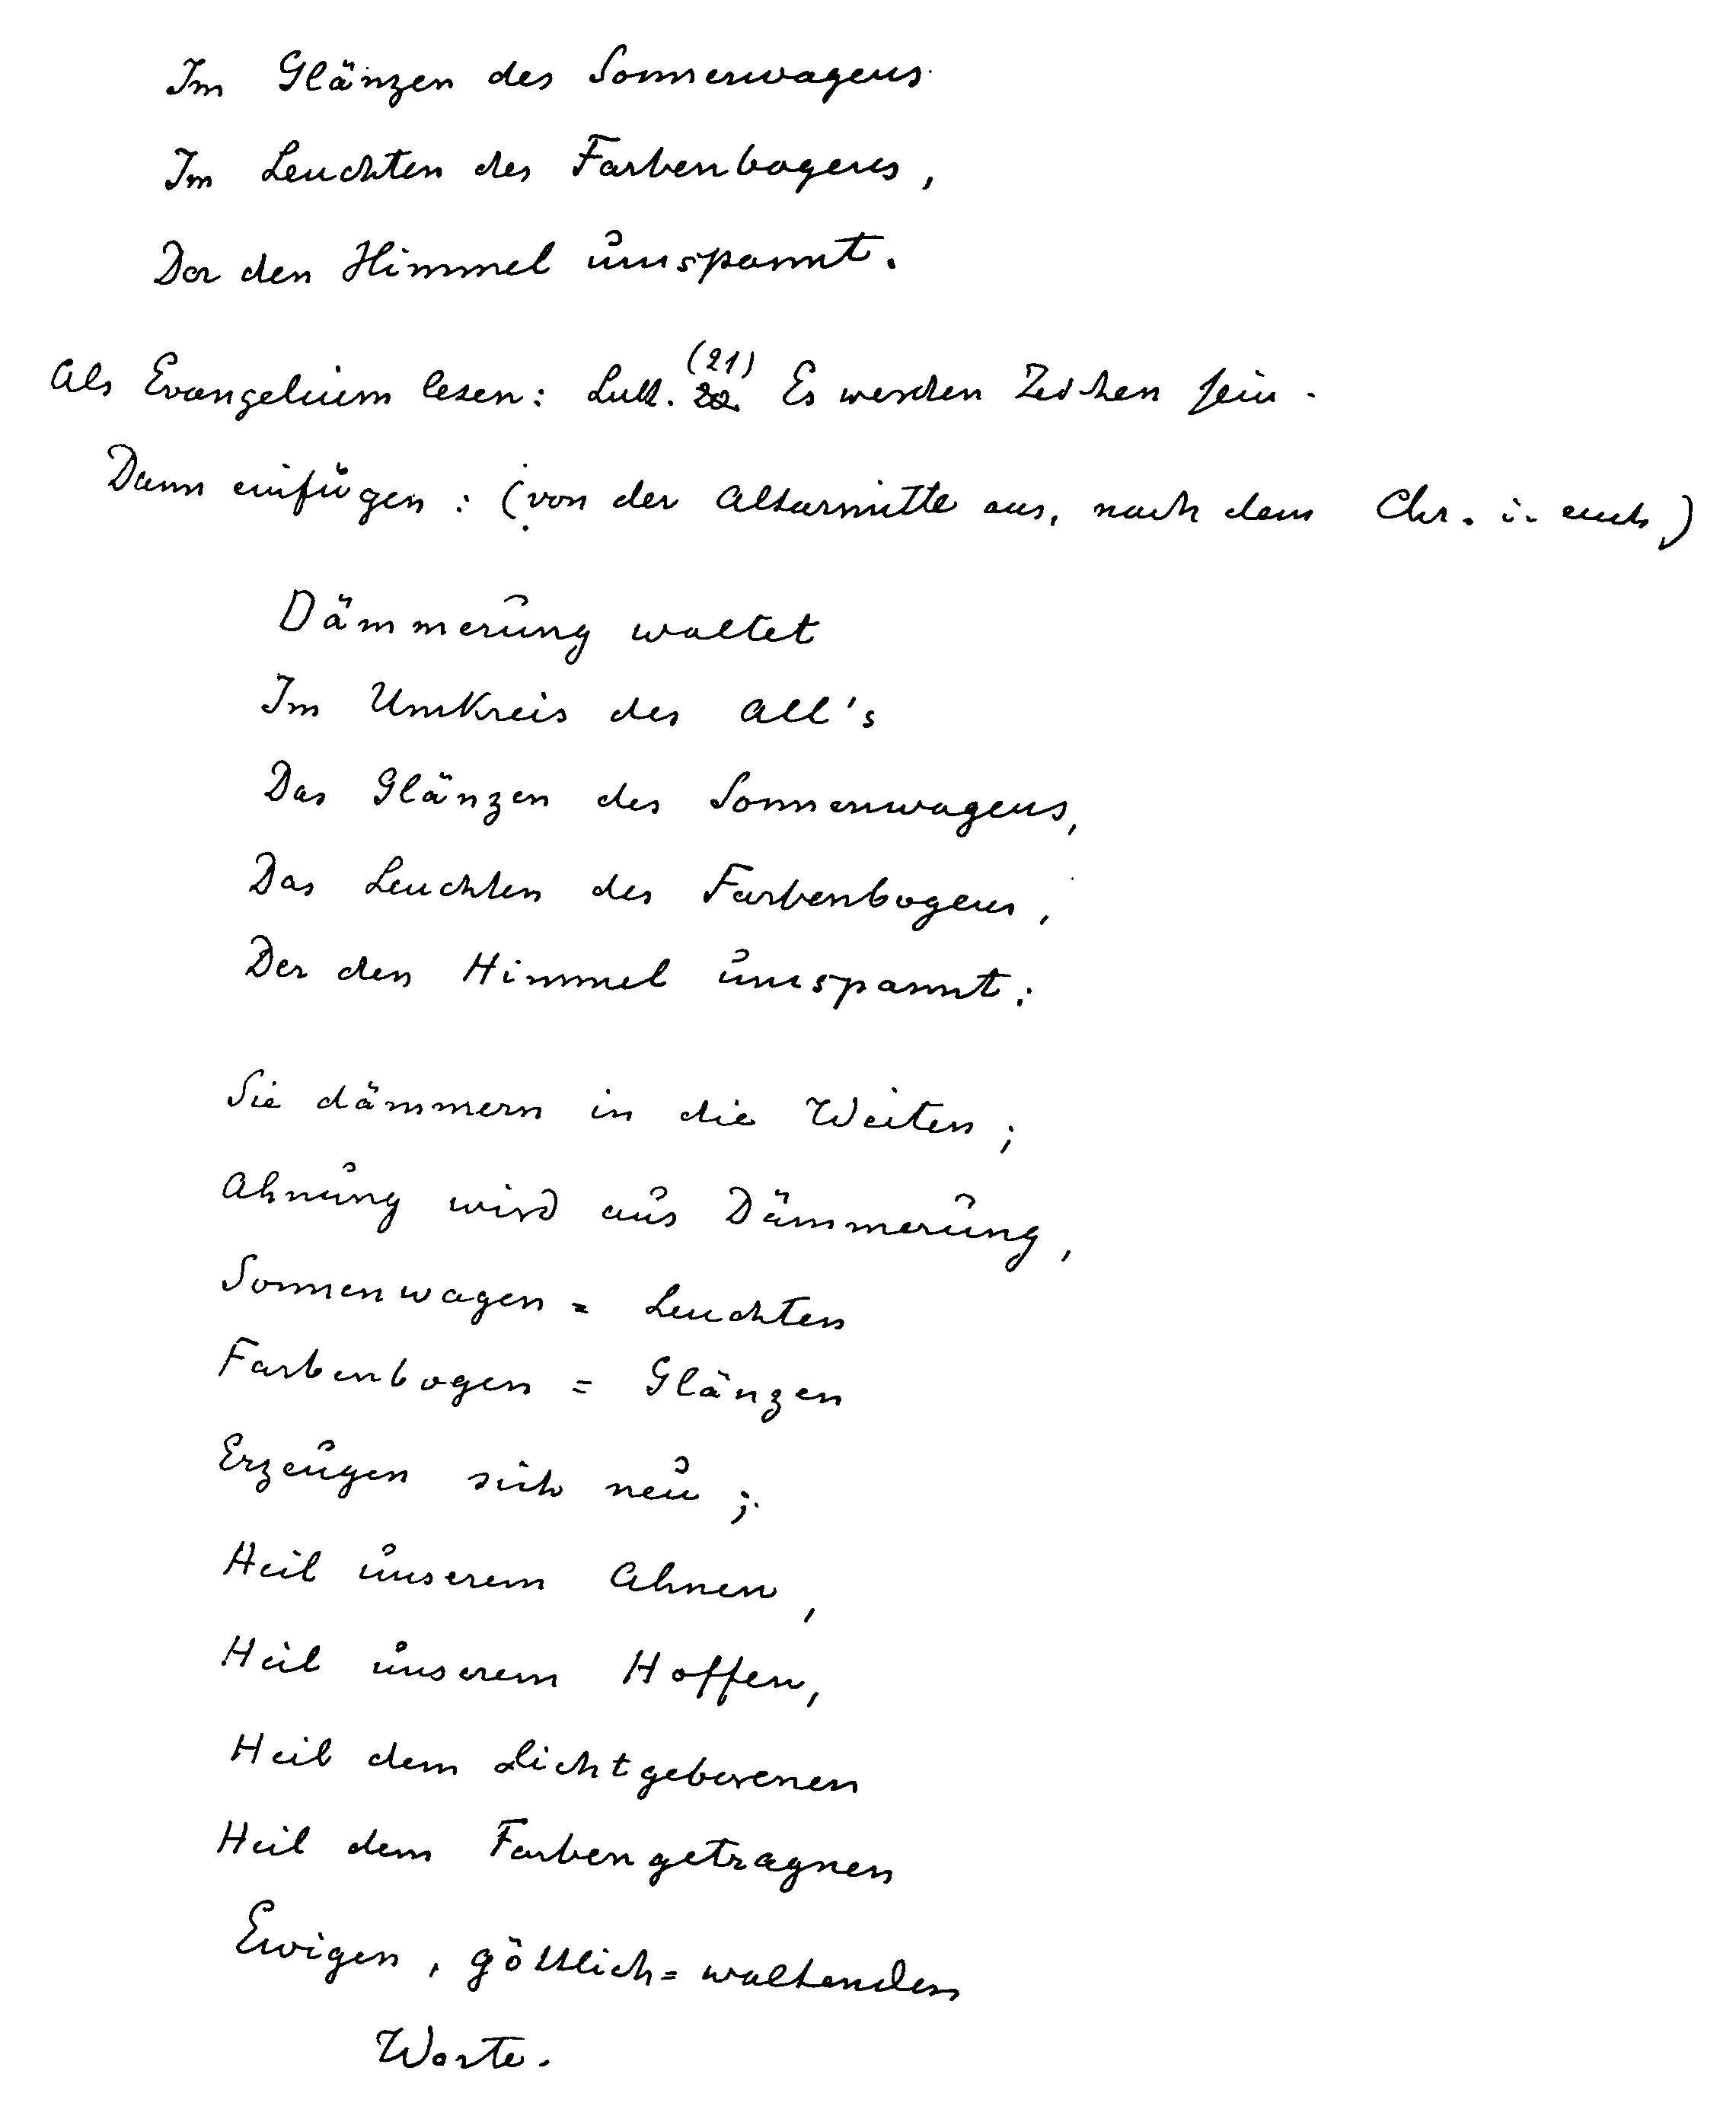 Im Glänzen des Sonnenwagens
Im Leuchten des Farbenbogens,
Der den Himmel umspannt.
Als Evangelium lesen: Luk. (21) Es werden Zeichen sein.
Dann einfügen: (von der Altarmitte aus, nach dem Chr. i. euch)
Dämmerung waltet
Im Umkreis des All's
Das Glänzen des Sonnenwagens,
Das Leuchten des Farbenbogens,
Der den Himmel umspannt:
Sie dämmern in die Weiten;
Ahnung wird aus Dämmerung,
Sonnenwagen = Leuchten
Farbenbogen = Glänzen
Erzeugen sich neu;
Heil unserem Ahnen,
Heil unserem Hoffen,
Heil dem Lichtgeborenen
Heil dem Farbengetragnen
Ewigen, göttlich=waltenden
Worte.